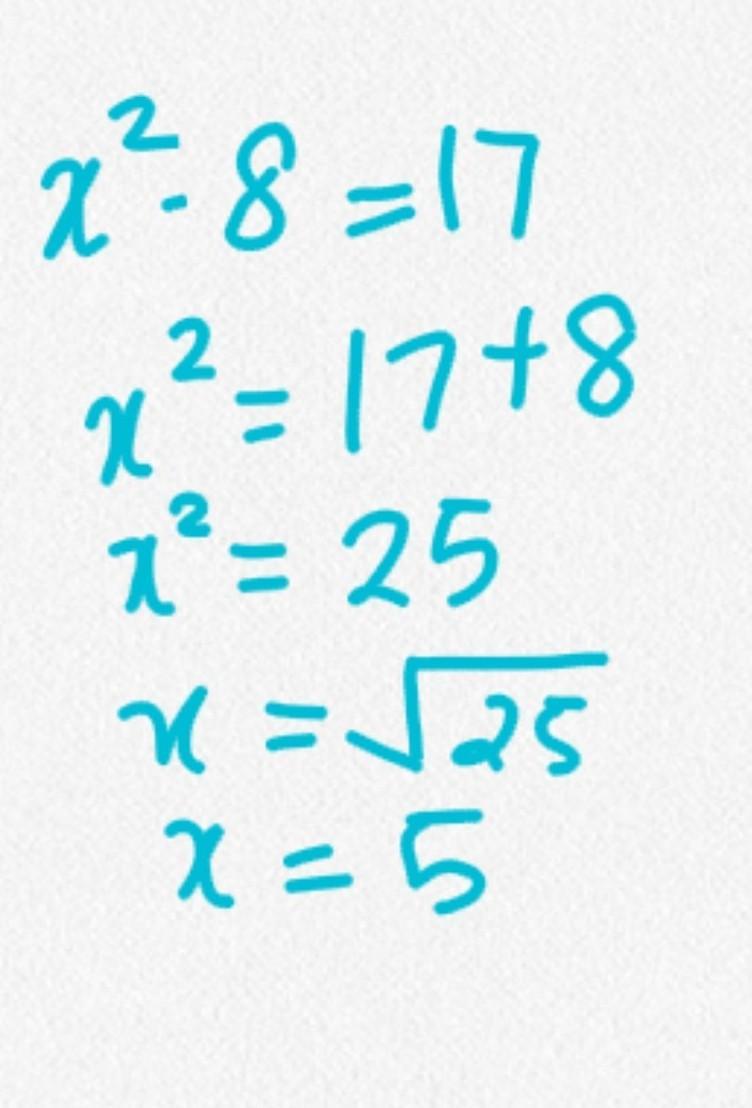 x² - 8 = 17
x² = 17 + 8
x² = 25
x = √25
x = 5